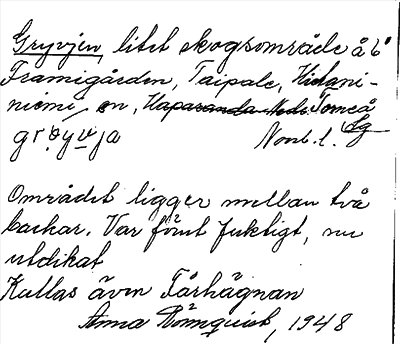 Gryvjen, litet skogsområde å 6
Framigården, Taipale, Hietani-
niemi, sn, Haparanda Ned. Torneå
grøyvja Norrb. l. Lg
Området ligger mellan två
backar. Var förut fuktigt, nu
utdikat
Kallas även Fårhägnan
Anna Rönnquist, 1948